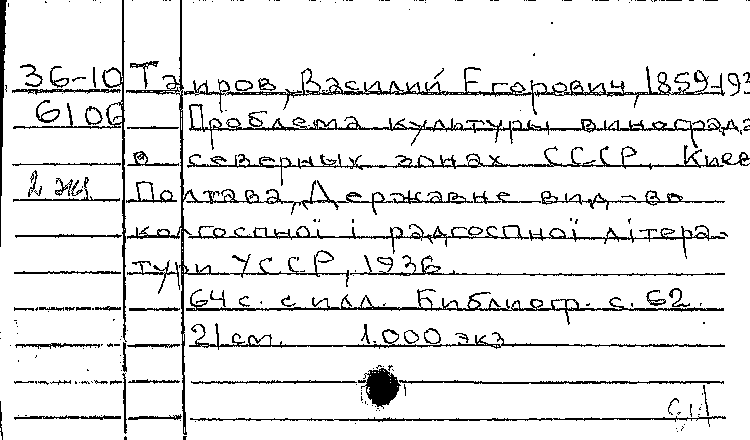 36-10 Таиров, Василий Егорович, 1859-193
6106 Проблема культуры винограда
в северных зонах СССР. Киев
2 экз Полтава, Державне вид-во
колгоспної і радгоспної літера-
тури УССР, 1936.
64 с. с илл. Библиогр. с. 62.
21 см. 1.000 экз